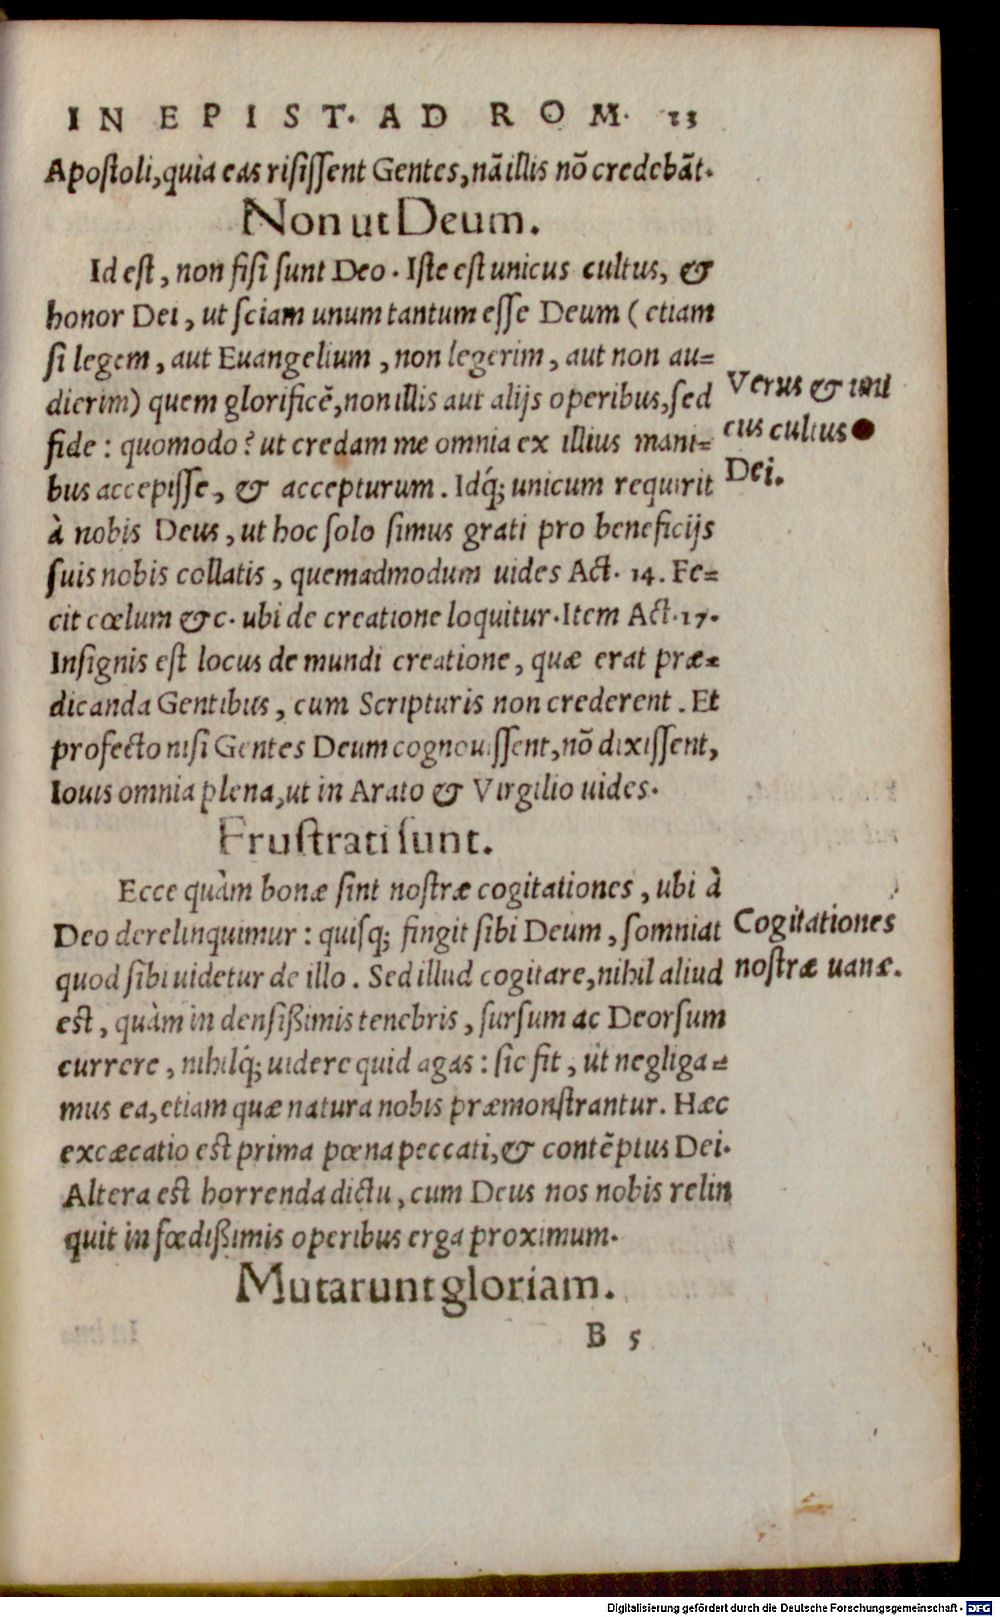 IN EPIST. AD ROM. 13
Apostoli, quia eas risissent Gentes, nã illis nõ credebãt.
Non ut Deum.
Id est, non fisi sunt Deo. Iste est unicus cultus, &
honor Dei, ut sciam unum tantum esse Deum (etiam
si legem, aut Euangelium, non legerim, aut non au=
dierim) quem glorificẽ, non illis aut alijs operibus, sed
fide: quomodo? ut credam me omnia ex illius mani=
bus accepisse, & accepturum. Idq́; unicum requirit
à nobis Deus, ut hoc solo simus grati pro beneficijs
suis nobis collatis, quemadmodum uides Act. 14. Fe=
cit cœlum &c. ubi de creatione loquitur. Item Act. 17.
Insignis est locus de mundi creatione, quæ erat præ=
dicanda Gentibus, cum Scripturis non crederent. Et
profecto nisi Gentes Deum cognouissent, nõ dixissent,
Iouis omnia plena, ut in Arato & Virgilio uides.
Verus & uni
cus cultus
Dei.
Frustrati sunt.
Ecce quàm bonæ sint nostræ cogitationes, ubi à
Deo derelinquimur: quisq; fingit sibi Deum, somniat
quod sibi uidetur de illo. Sed illud cogitare, nihil aliud
est, quàm in densißimis tenebris, sursum ac Deorsum
currere, nihilq́; uidere quid agas: sic fit, ut negliga=
mus ea, etiam quæ natura nobis præmonstrantur. Hæc
excæcatio est prima pœna peccati, & contẽptus Dei.
Altera est horrenda dictu, cum Deus nos nobis relin
quit in fœdißimis operibus erga proximum.
Cogitationes
nostræ uanæ.
Mutarunt gloriam.
B 5
Digitalisierung gefördert durch die Deutsche Forschungsgemeinschaft - DFG